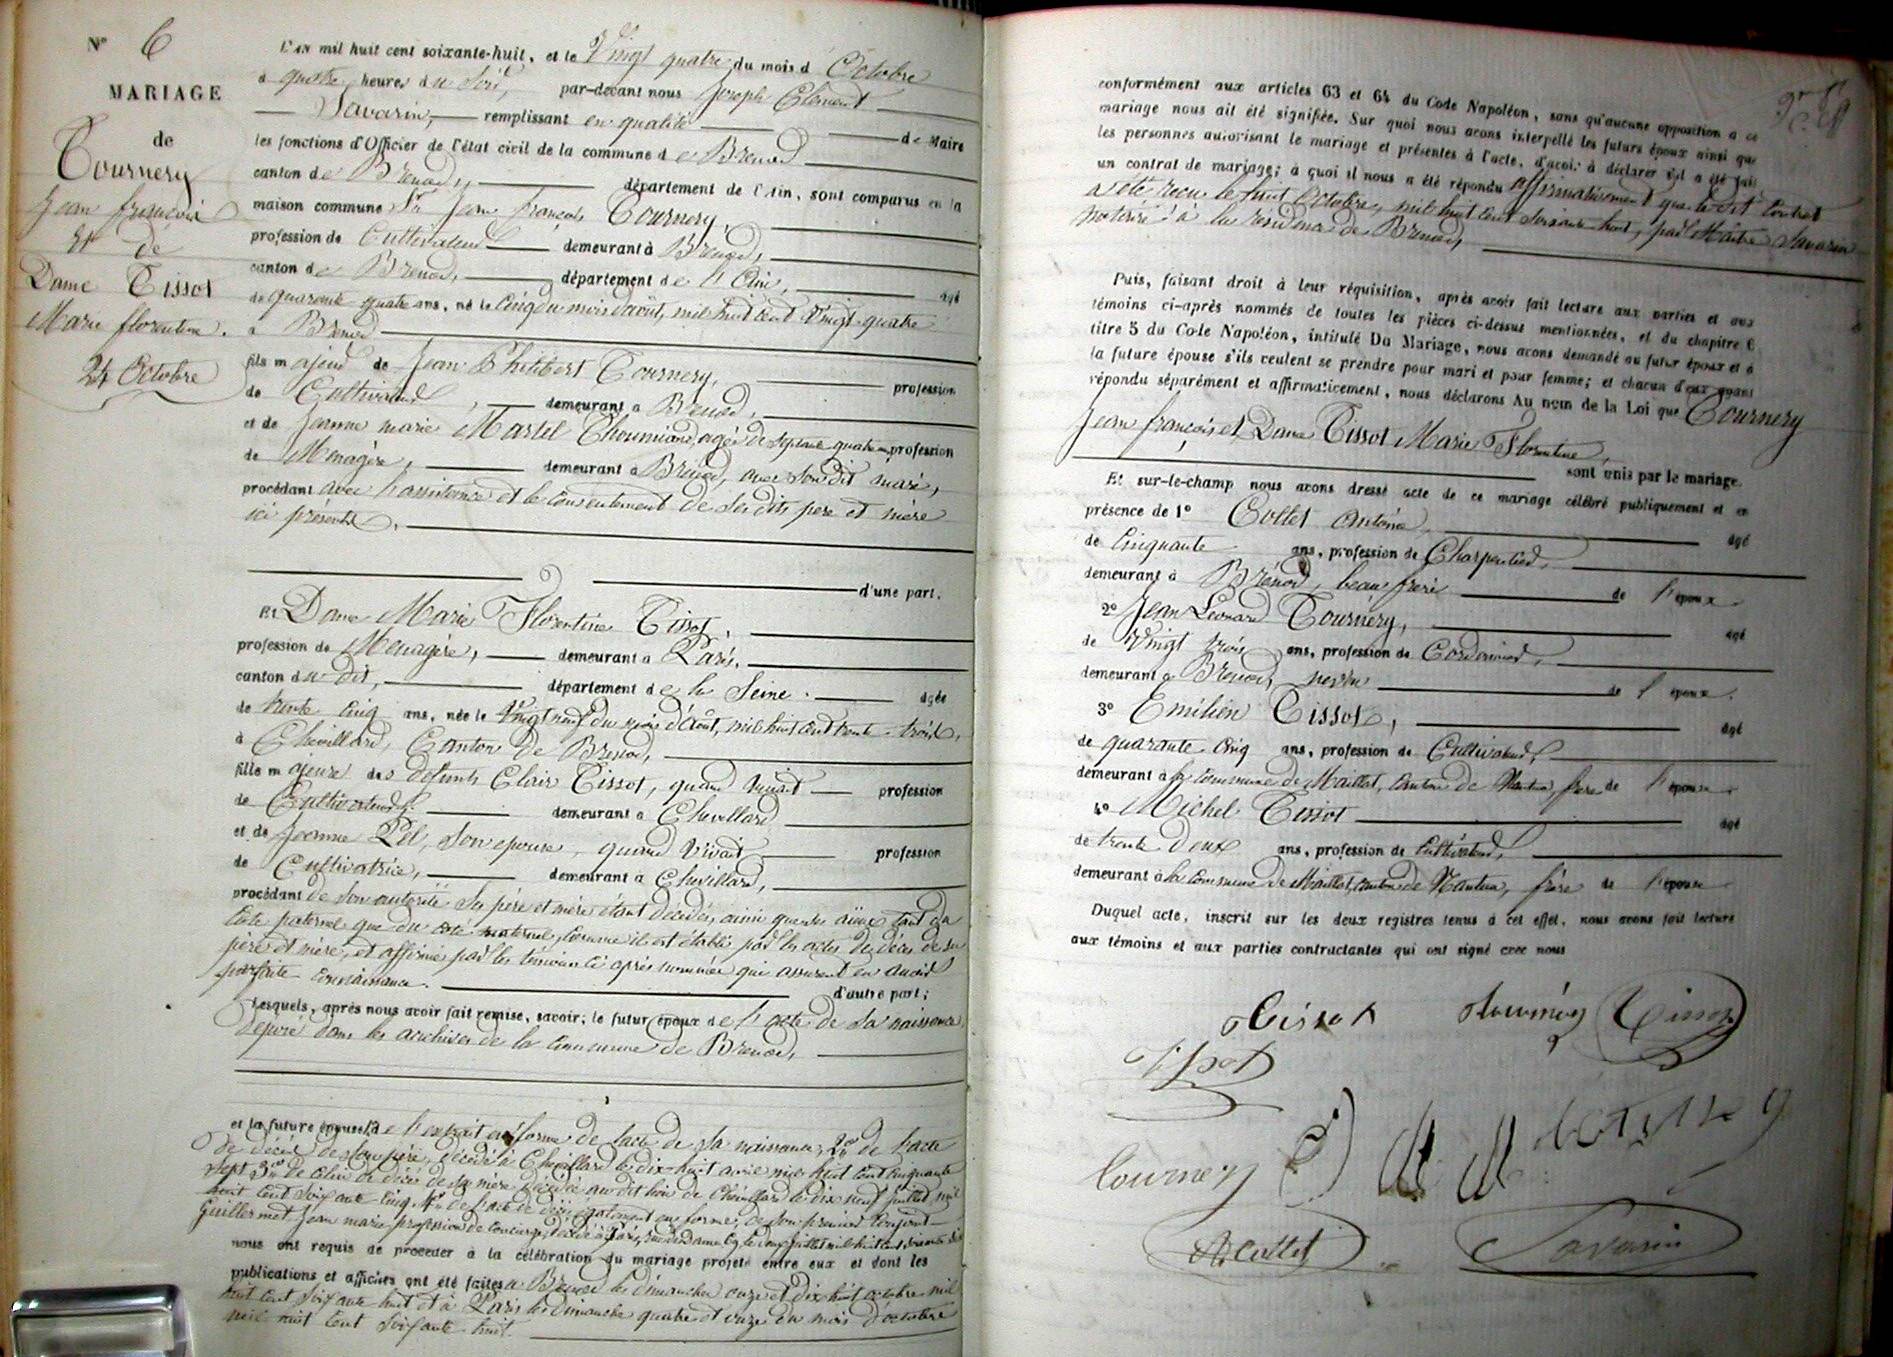 N° 6
MARIAGE
de
Tournery
Jean françois
Et de
Dame Tissot
Marie florentine.
24 Octobre
L'AN mil huit cent soixante-huit, et le Vingt quatre du mois d'Octobre
à quatre heures du Soir, par-devant nous Joseph Clément
Savarin, remplissant en qualité de Maire
les fonctions d'Officier de l'état civil de la commune de Brenod
canton de Brenod, département de l'Ain, sont comparus en la
maison commune Sr Jean françois Tournery,
profession de Cultivateur demeurant à Brenod,
canton de Brenod, département de l'Ain, âgé
de quarante quatre ans, né le Cinq du mois d'août, mil huit cent vingt-quatre
à Brenod
fils majeur de Jean Philibert Tournery, profession
de Cultivateur, demeurant à Brenod,
et de Jeanne marie Martel Thoumiand, agée de septante quatre ans profession
de Ménagère, demeurant à Brénod, avec son dit mari,
procédant avec l'assistance et le consentement de ses dits père et mère
ici présents.
d'une part.
Et Dame Marie Florentine Tissot,
profession de Ménagère, demeurant à Paris,
canton du dit, département de la Seine. âgée
de trente cinq ans, née le Vingt neuf du mois d'Août, mil huit cent trente-trois,
à Chevillard, Canton de Brenod,
fille majeure des défunts Clair Tissot, quand vivait profession
de Cultivateur demeurant à Chevillard
et de Jeanne Pel, son epouse, quand Vivait profession
de Cultivatrice, demeurant à Chevillard,
procédant de son autorité Ses père et mère étant décédés, ainsi que ses aïeux tant du
côté paternel que du coté maternel, comme il est établi par les actes de décès de ses
père et mère, et affirmé par les témoins ci après nommés qui assurent en avoir
parfaite connaissance. d'autre part;
Lesquels, après nous avoir fait remise, savoir: le futur époux de l'acte de sa naissance
déposé dans les archives de la commune de Brenod,
et la future épouse, de l'extrait en forme de l'acte de sa naissance, 2° de l'acte
de décès de son père, décédé à Chevillard le dix huit avril mil huit cent cinquante
sept 3° de Celui de décès de sa mère décédée au dit lieu de Chevillard le dix neuf juillet mil
huit cent Soixante Cinq, 4° de l'acte de décès également en forme, de son premier conjoint
Guillermet Jean marie profession de Concierge, décédé à Paris,
nous ont requis de procéder à la célébration du mariage projeté entre eux et dont les
publications et affiches ont été faites à Brenod les dimanches onze et dix huit octobre mil
huit cent Soixante huit et à Paris les dimanche quatre et onze du mois d'octobre
mil huit Cent Soixante huit
conformément aux articles 63 et 64 du Code Napoléon, sans qu'aucune opposition à ce
mariage nous ait été signifiée. Sur quoi nous avons interpellé les futurs époux ainsi que
les personnes autorisant le mariage et présentes à l'acte, d'avoir à déclarer s'il a été fait
un contrat de mariage; à quoi il nous a été répondu affirmativement que le dit Contrat
a été recu le huit Octobre, mil huit cent soixante huit, par Maître Savarin
notaire à la résidence de Brenod,
Puis, faisant droit à leur réquisition, après avoir fait lecture aux parties et aux
témoins ci-après nommés de toutes les pièces ci-dessus mentionnées, et du chapitre 6
titre 5 du Code Napoléon, intitulé Du Mariage, nous avons demandé au futur époux et à
la future épouse s'ils veulent se prendre pour mari et pour femme; et chacun d'eux ayant
répondu séparément et affirmativement, nous déclarons Au nom de la Loi que Tournery
Jean françois et Dame Tissot Marie Florentine
sont unis par le mariage.
Et sur-le-champ nous avons dressé acte de ce mariage célébré publiquement et en
présence de 1° Collet Antoine, âgé
de Cinquante ans, profession de Charpentier,
demeurant à Brénod, beau frère de l'époux
2° Jean Léonard Tournery, âgé
de Vingt trois ans, profession de Cordonnier,
demeurant à Brenod, neveu de l'époux.
3° Emilien Tissot, âgé
de quarante cinq ans, profession de Cultivateur,
demeurant à la commune de Maillat, canton de Nantua, frère de l'épouse
4° Michel Tissot âgé
de trente deux ans, profession de Cultivateur,
demeurant à la commune de Maillat, canton de Nantua, frère de l'épouse
Duquel acte, inscrit sur les deux registres tenus à cet effet, nous avons fait lecture
aux témoins et aux parties contractantes qui ont signé avec nous
Tissot Tournery Tissot
Tissot
Tournery
A Collet Savarin